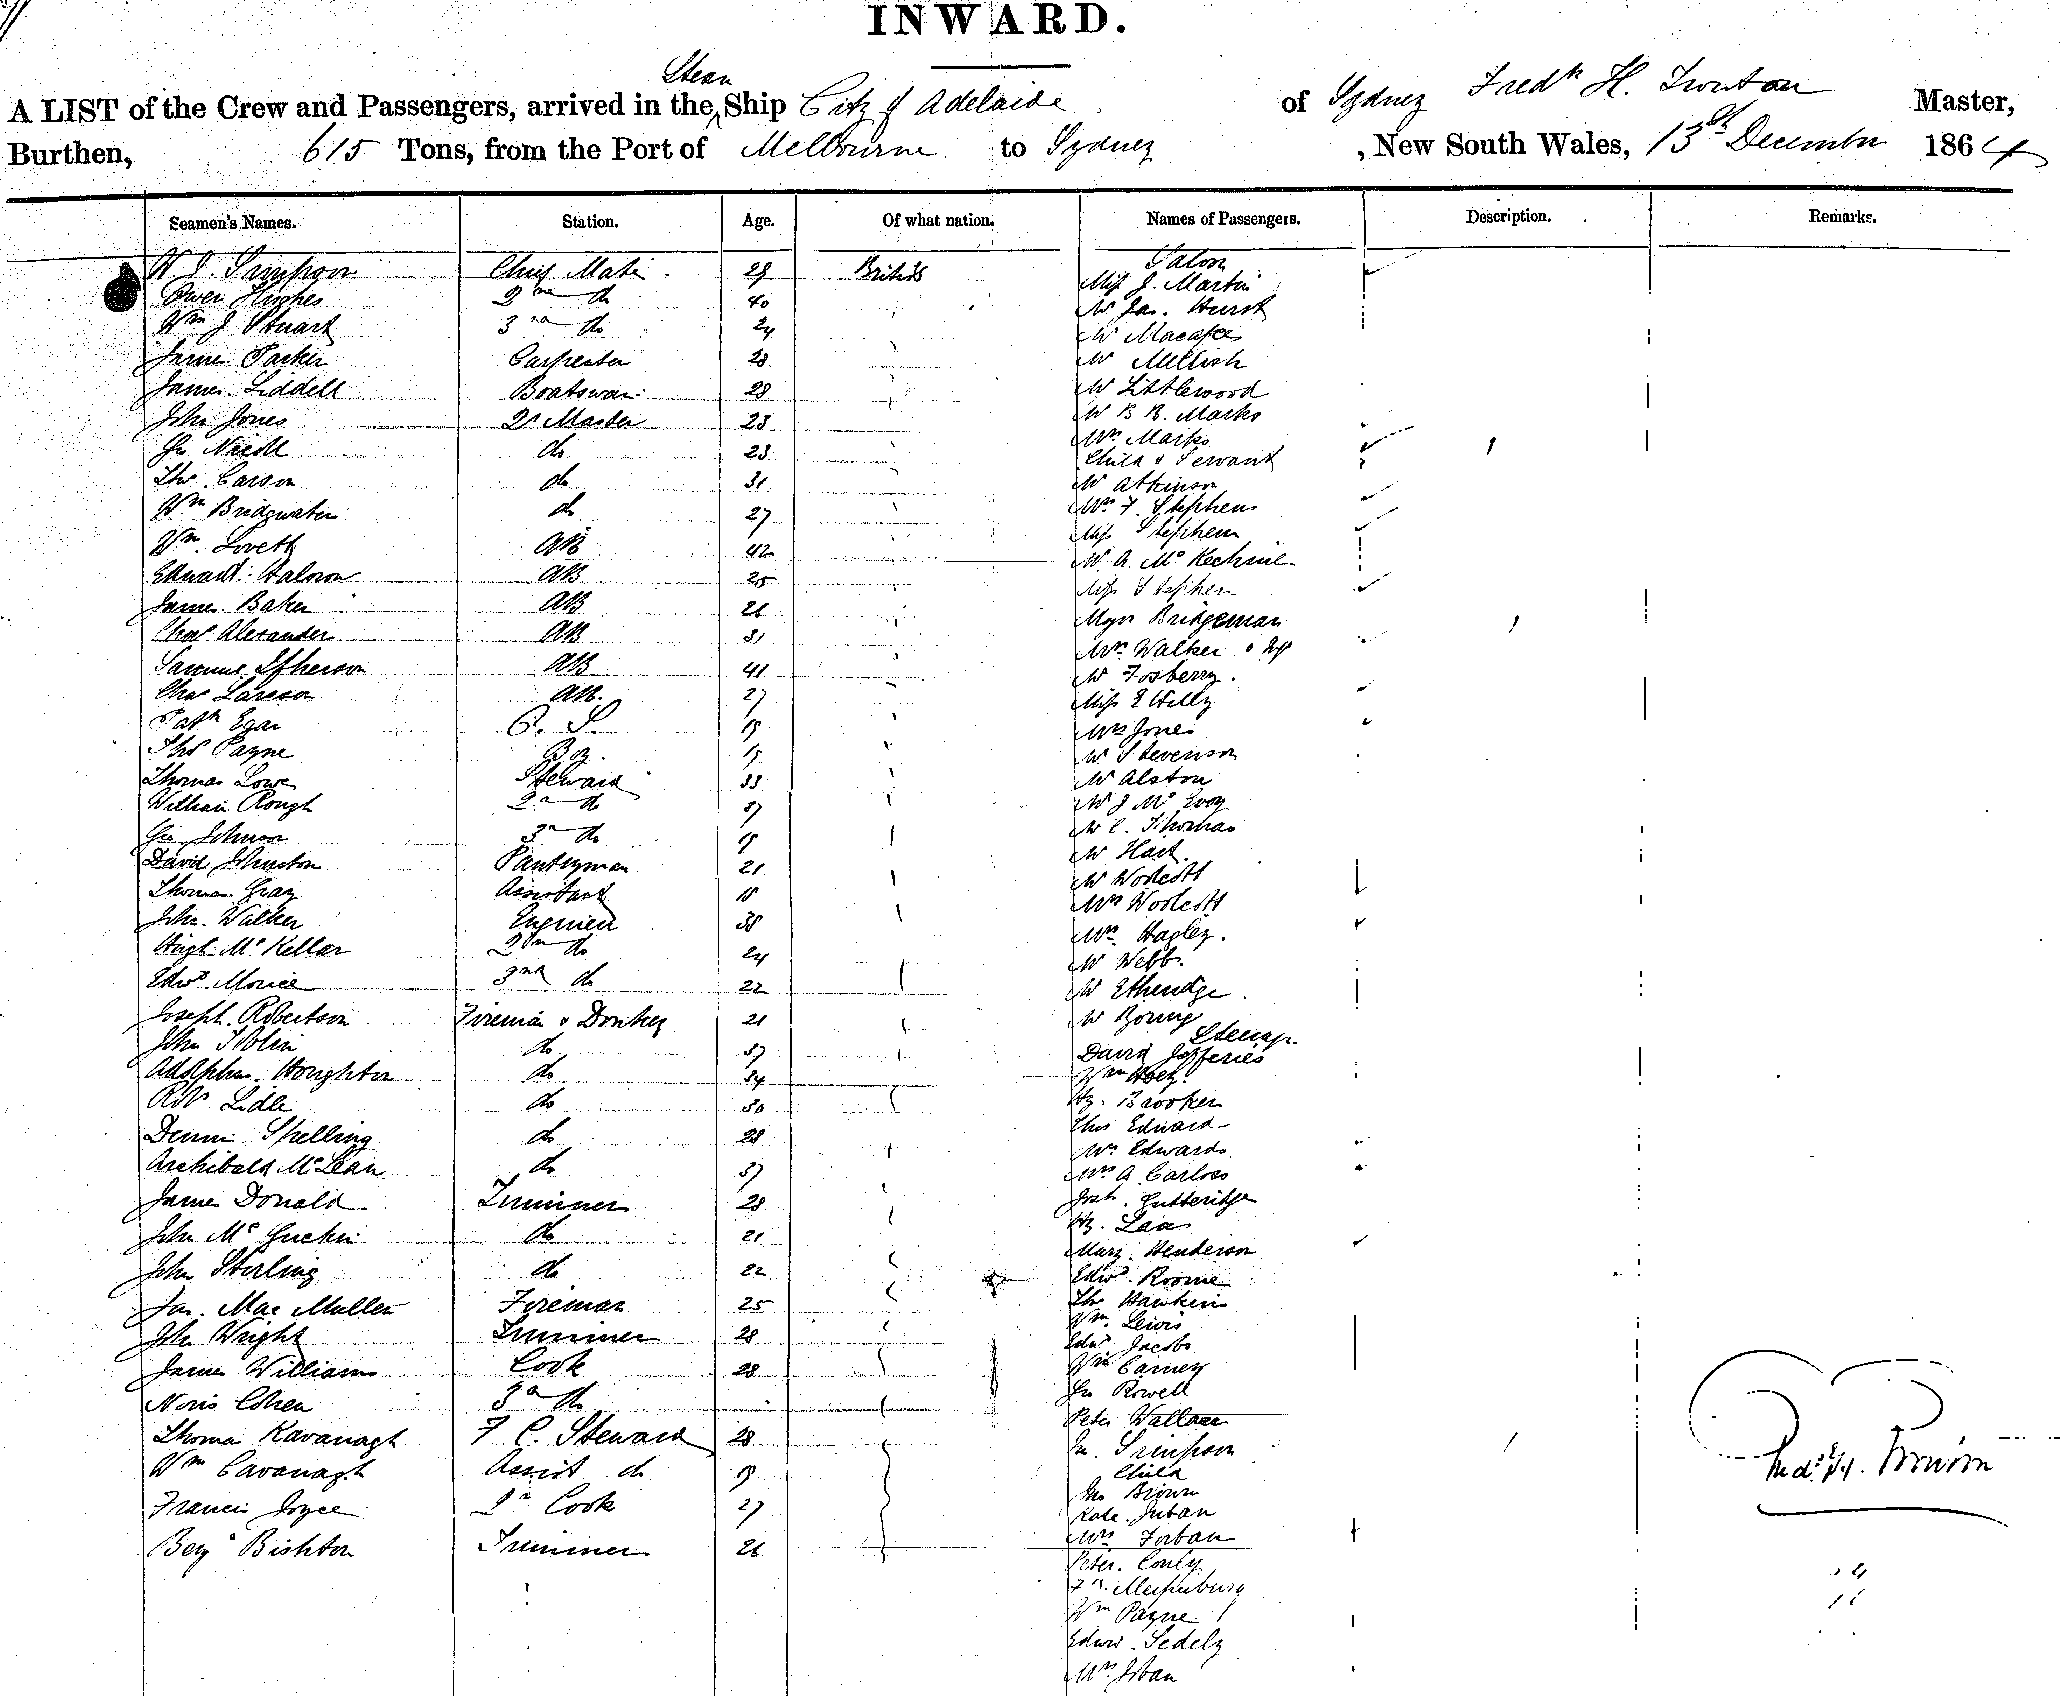 INWARD.
A LIST of the Crew and Passengers, arrived in the Steam Ship City of Adelaide of Sydney Fredk H. Trouton Master,
Burthen, 615 Tons, from the Port of Melbourne to Sydney , New South Wales, 13th December 1864
Seamen's Names. Station. Age. Of what nation. Names of Passengers. Description. Remarks.
Salon
Simpson Chief Mate 29 British Miss J. Martin
Owen Hughes 2nd do 40 Mr Jas. Hurst
Wm J Stuart 3rd do 24 Mr Macafee
James Parker Carpenter 28 Mr Mellish
James Liddell Boatswain 28 Mr Littlewood
John Jones Qr Master 23 Mr B B. Marks
do 23 Mrs Marks
Child & Servant
Thos Carson do 31 Mr Atkinson
Wm Bridgwater do 27 Mrs F. Stephens
Wm Lovett AB 42 Miss Stephen
Edward AB 25 Mr A. Mc Kechnie
James Baker AB 26 Miss Stephen
Chas Alexander AB 31 Major Bridgeman
Samuel AB 41 Mrs Walker &
Chas Larsson AB. 27 Mr Fosberry.
Patk Egan O. S. 19 Miss E Willy
Thos Payne Boy 15 Mrs Jones
Thomas Lowe Steward 33 Mr Stevenson
William Rough 2nd do 37 Mr Alston
Geo Johnson 3rd do 19 Mr J Mc Evoy
David Johnston Pantryman 21 Mr C. Thomas
Thomas Gray Assistant 18 Mr Hart.
John Walker Engineer 38 Mr Woolcott
Hugh Mc Kellar 2nd do 24 Mrs Woolcott
Edwd Morice 3rd do 22 Mrs Hagley.
Joseph Robertson Fireman & Donkey 21 Mr Webb.
John Tobin do 37 Mr Etheridge
Adolphus Houghton do 34 Mr Young
Robt Lidle do 30 Steerage
Dennis Skelling do 28 David Jefferies
Archibald McLean do 37 Wm
James Donald Trimmer 28 Hy. Brooker
John Mc Guckin do 21 Thos Edward
John Stirling do 22 Mrs Edwards
Jas. Mac Mullen Fireman 25 Mrs A Carloss
John Wright Trimmer 28 Josh. Gutteridge
James Williams Cook 28 Hy. Laa
Noris Cohen 3rd do Mary Henderson
Thomas Kavanagh F C. Steward 28 Edwd Roome
Wm Cavanagh Assist do 19 Thos Hawkins
Francis Joyce 2nd Cook 27 Wm Lewis
Benj Bishton Trimmer 26 Edwd Jacobs
Wm Carney
Jno Rowell
Peter Wallace
Jn. Simpson
Child
Jno Brown
Kate
Mrs
Peter. Conly
Wm Payne
Edwd. Sedely
Mrs
Fredk H. Trouton